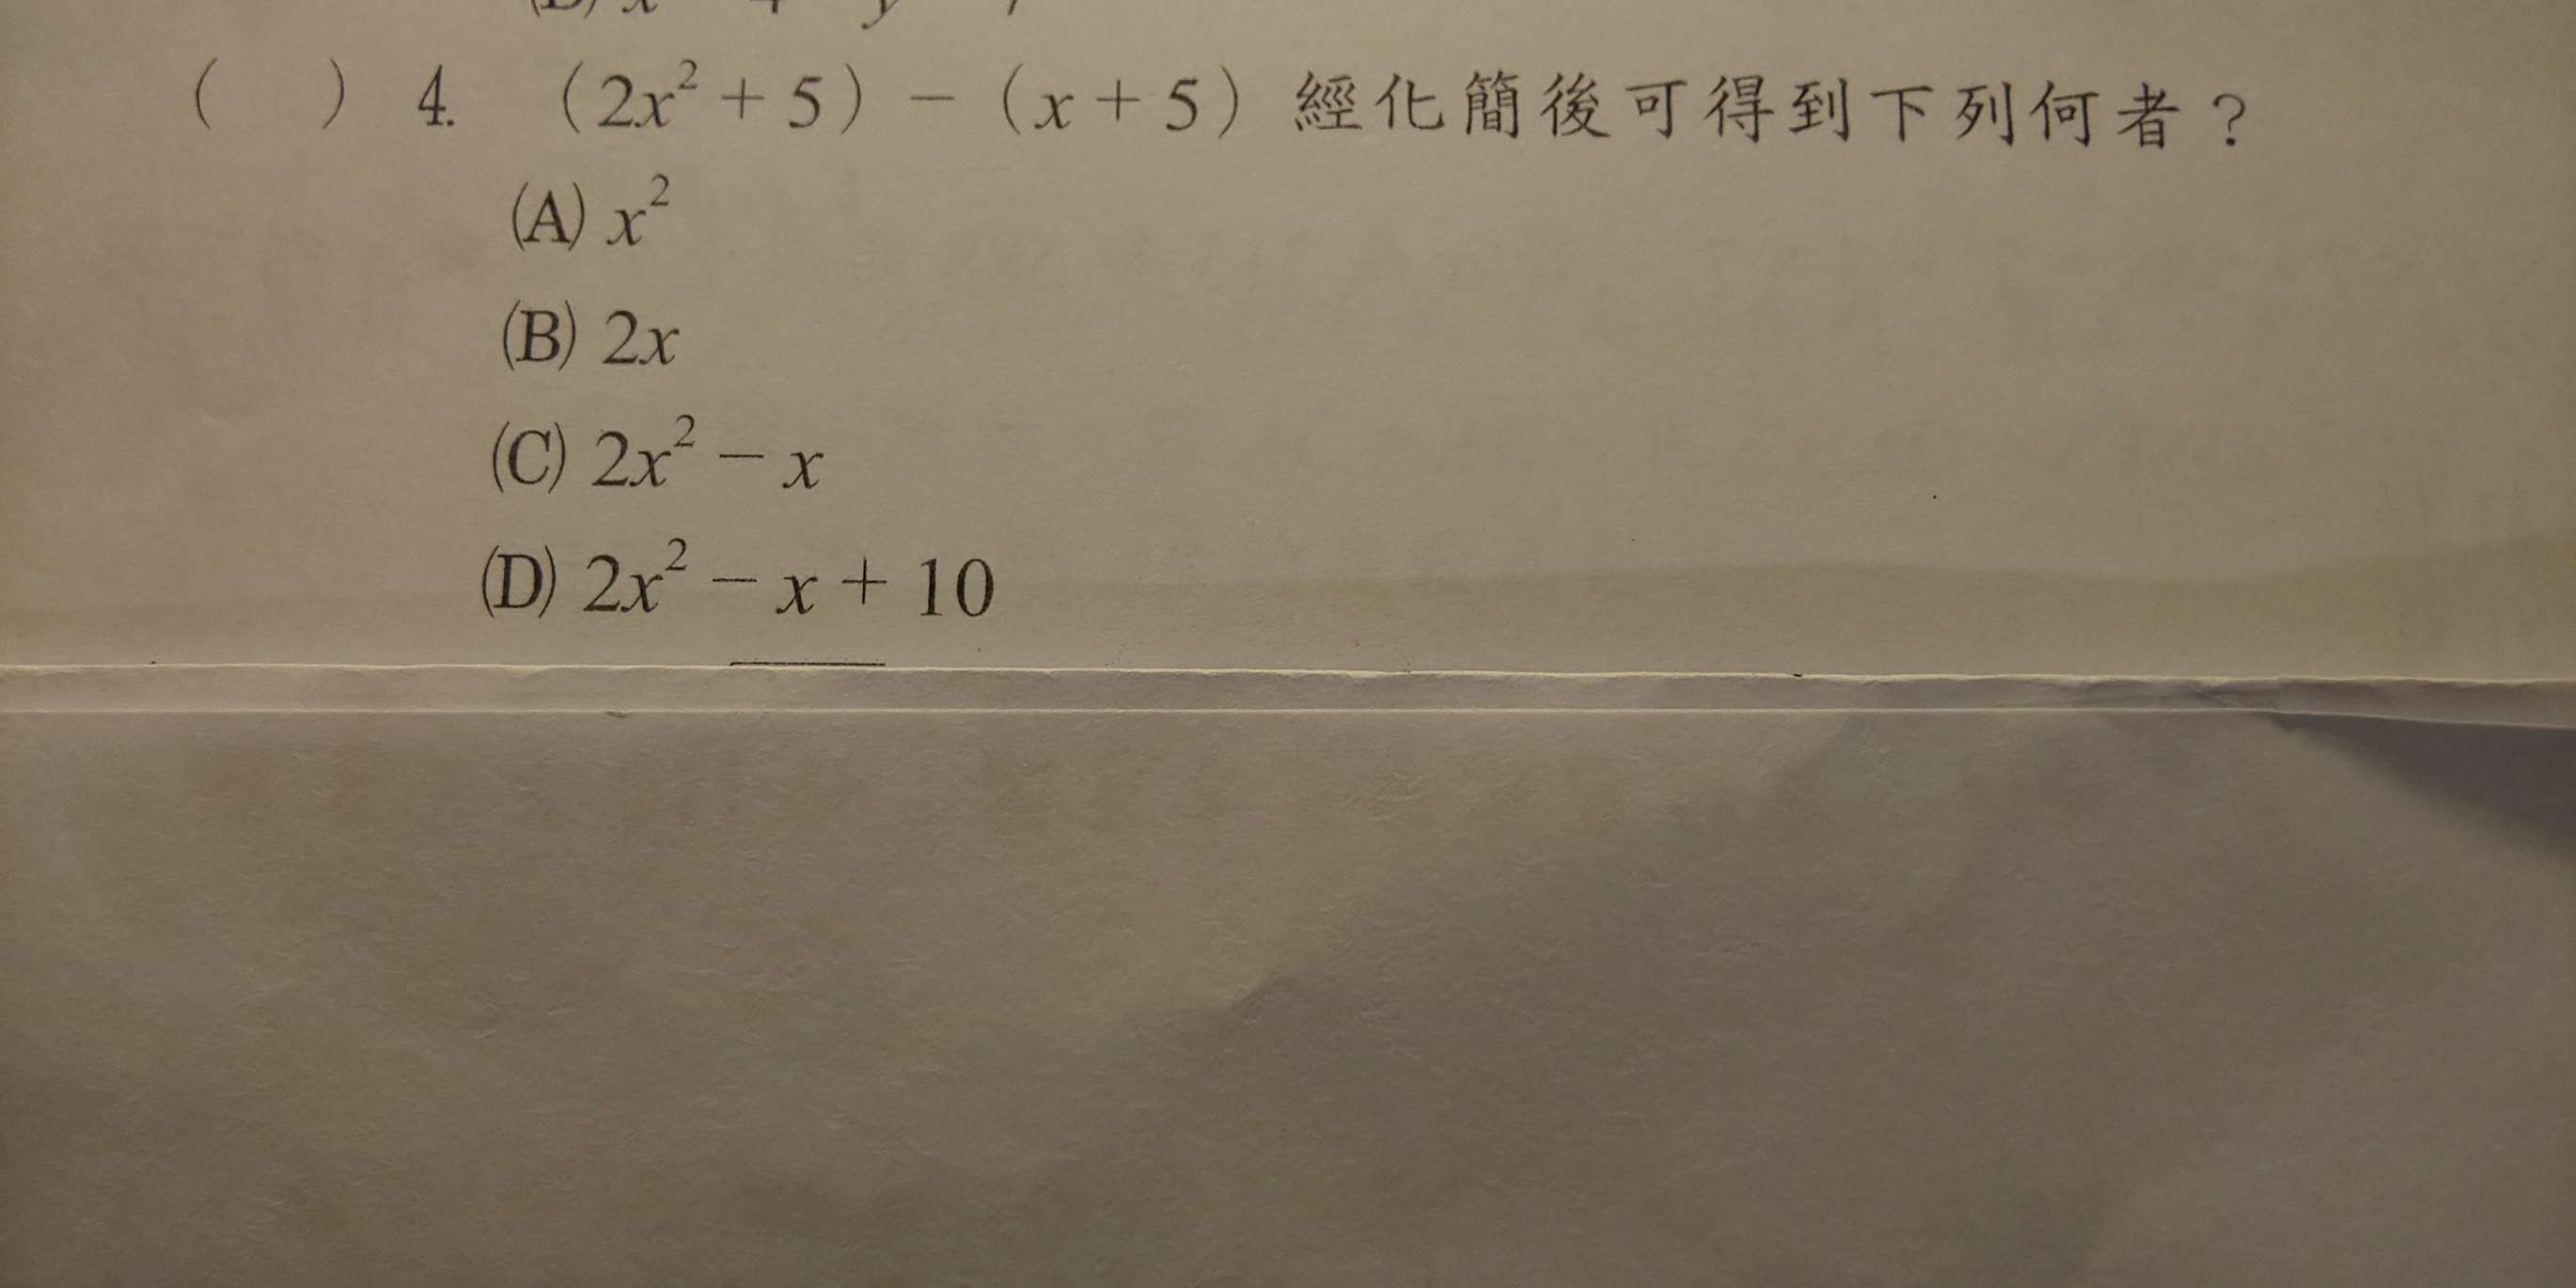 (　) 4. (2x² + 5) − (x + 5) 經化簡後可得到下列何者？
(A) x²
(B) 2x
(C) 2x² − x
(D) 2x² − x + 10